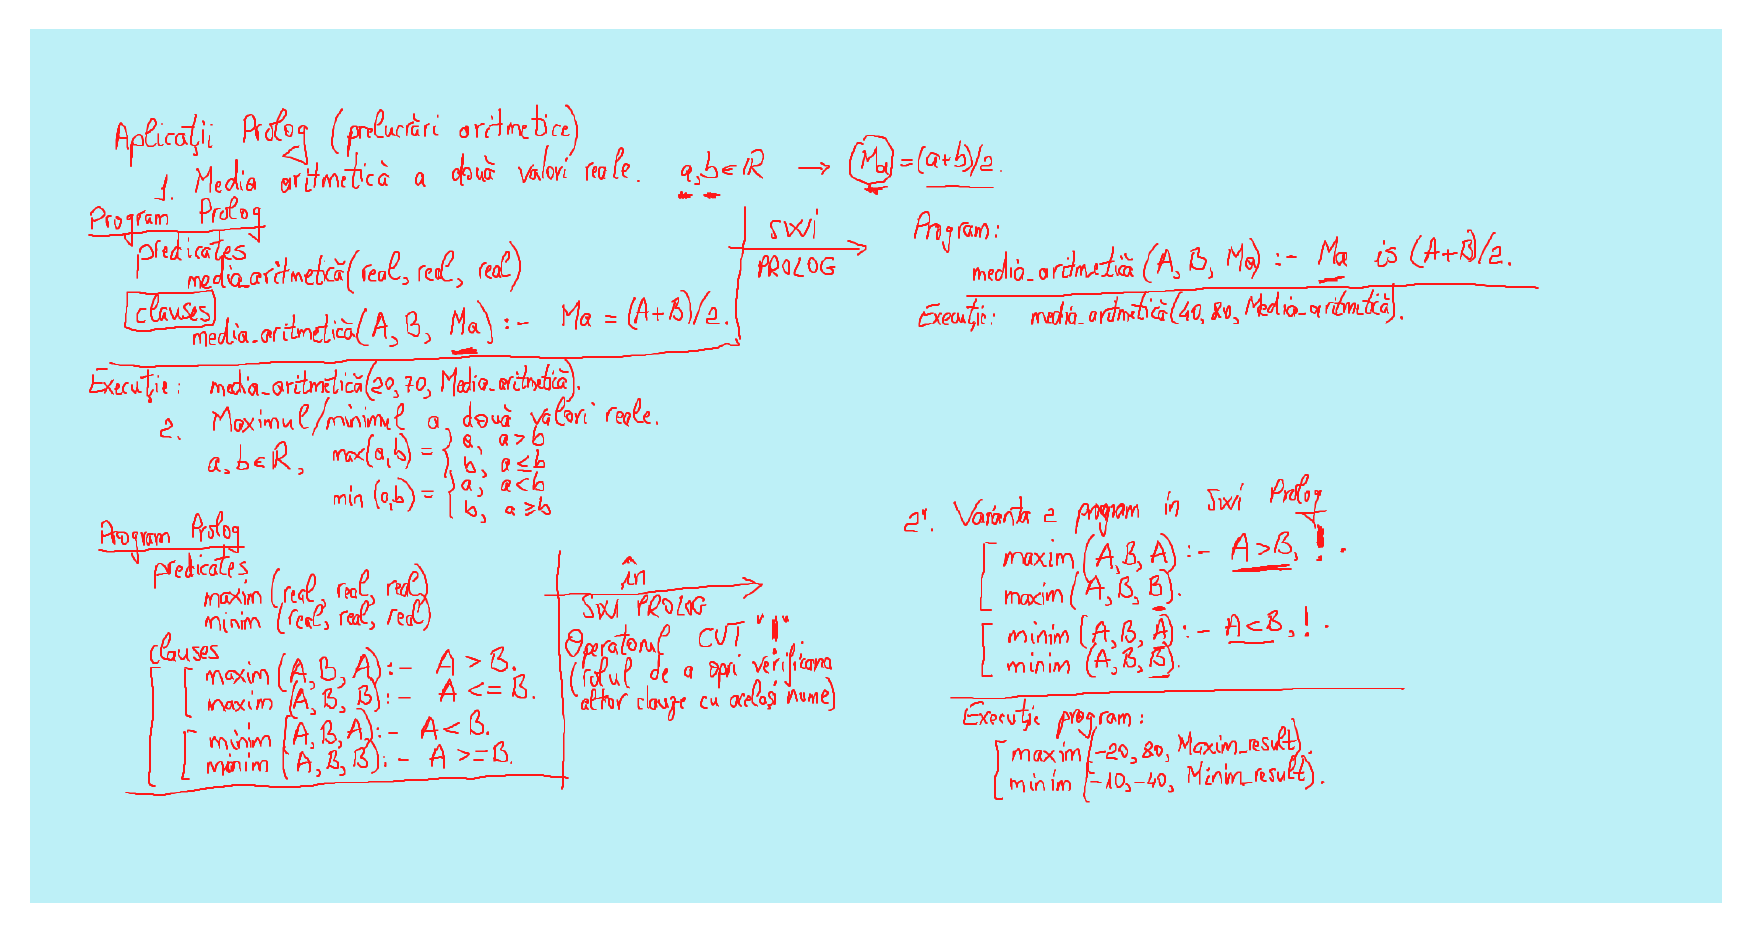 Aplicații Prolog (prelucrări aritmetice)
1. Media aritmetică a două valori reale. a,b∈ℝ → Ma = (a+b)/2.
Program Prolog
predicates
media_aritmetică(real, real, real)
clauses
media_aritmetică(A, B, Ma) :- Ma = (A+B)/2.
Execuție: media_aritmetică(20, 70, Media_aritmetică).
SWI
PROLOG
Program:
media_aritmetică(A, B, Ma) :- Ma is (A+B)/2.
Execuție: media_aritmetică(40, 80, Media_aritmetică).
2. Maximul/minimul a două valori reale.
a, b∈ℝ, max(a,b) = { a, a>b
b, a≤b
min(a,b) = { a, a<b
b, a≥b
Program Prolog
predicates
maxim (real, real, real)
minim (real, real, real)
clauses
maxim (A, B, A) :- A > B.
maxim (A, B, B) :- A <= B.
minim (A, B, A) :- A < B.
minim (A, B, B) :- A >= B.
în
SWI PROLOG
Operatorul CUT "!"
(rolul de a opri verificarea
altor clauze cu același nume)
2'. Varianta 2 program in SWI Prolog
maxim (A, B, A) :- A > B, !.
maxim (A, B, B).
minim (A, B, A) :- A < B, !.
minim (A, B, B).
Execuție program:
maxim (-20, 80, Maxim_result).
minim (-10, -40, Minim_result).